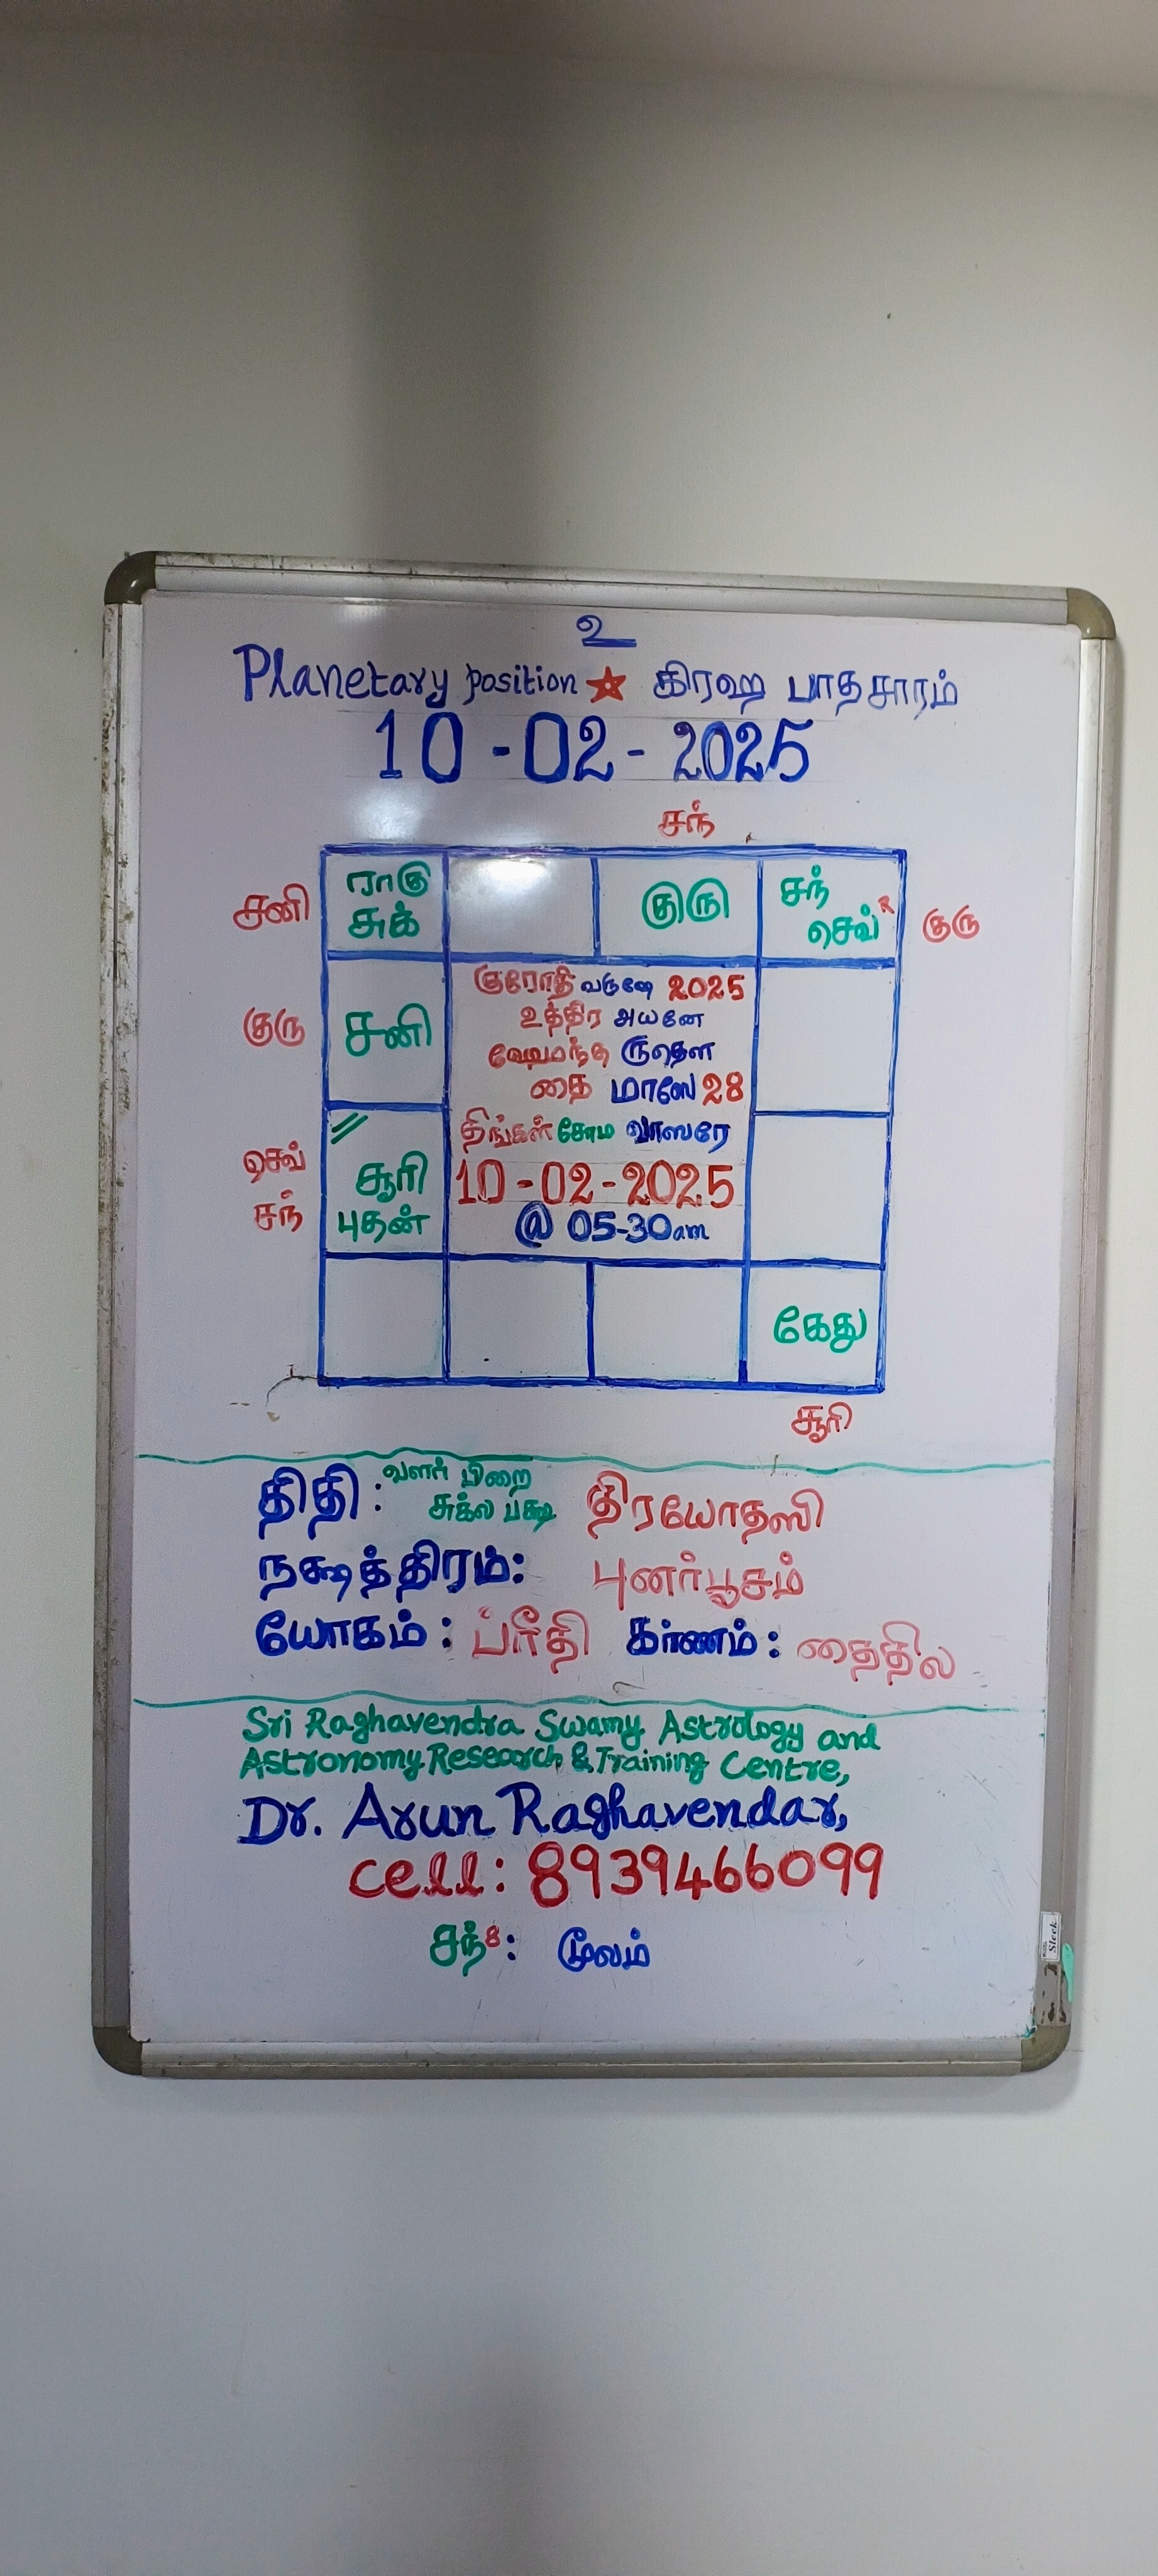 உ
Planetary position ★ கிரஹ பாதசாரம்
10-02-2025
சந்
சனி
ராகு
சுக்
குரு
சந்
செவ் R
குரு
குரு
சனி
குரோதி வருஷே 2025
உத்திர அயனே
ஹேமந்த ருதௌ
தை மாஸே 28
திங்கள் சோம வாஸரே
10-02-2025
@ 05-30am
செவ்
சந்
சூரி
புதன்
கேது
சூரி
திதி: வளர் பிறை
சுக்ல பக்ஷ திரயோதஸி
நக்ஷத்திரம்: புனர்பூசம்
யோகம்: ப்ரீதி கர்ணம்: தைதில
Sri Raghavendra Swamy Astrology and
Astronomy Research & Training Centre,
Dr. Arun Raghavendar,
cell: 8939466099
சந்8: மூலம்
Sleek